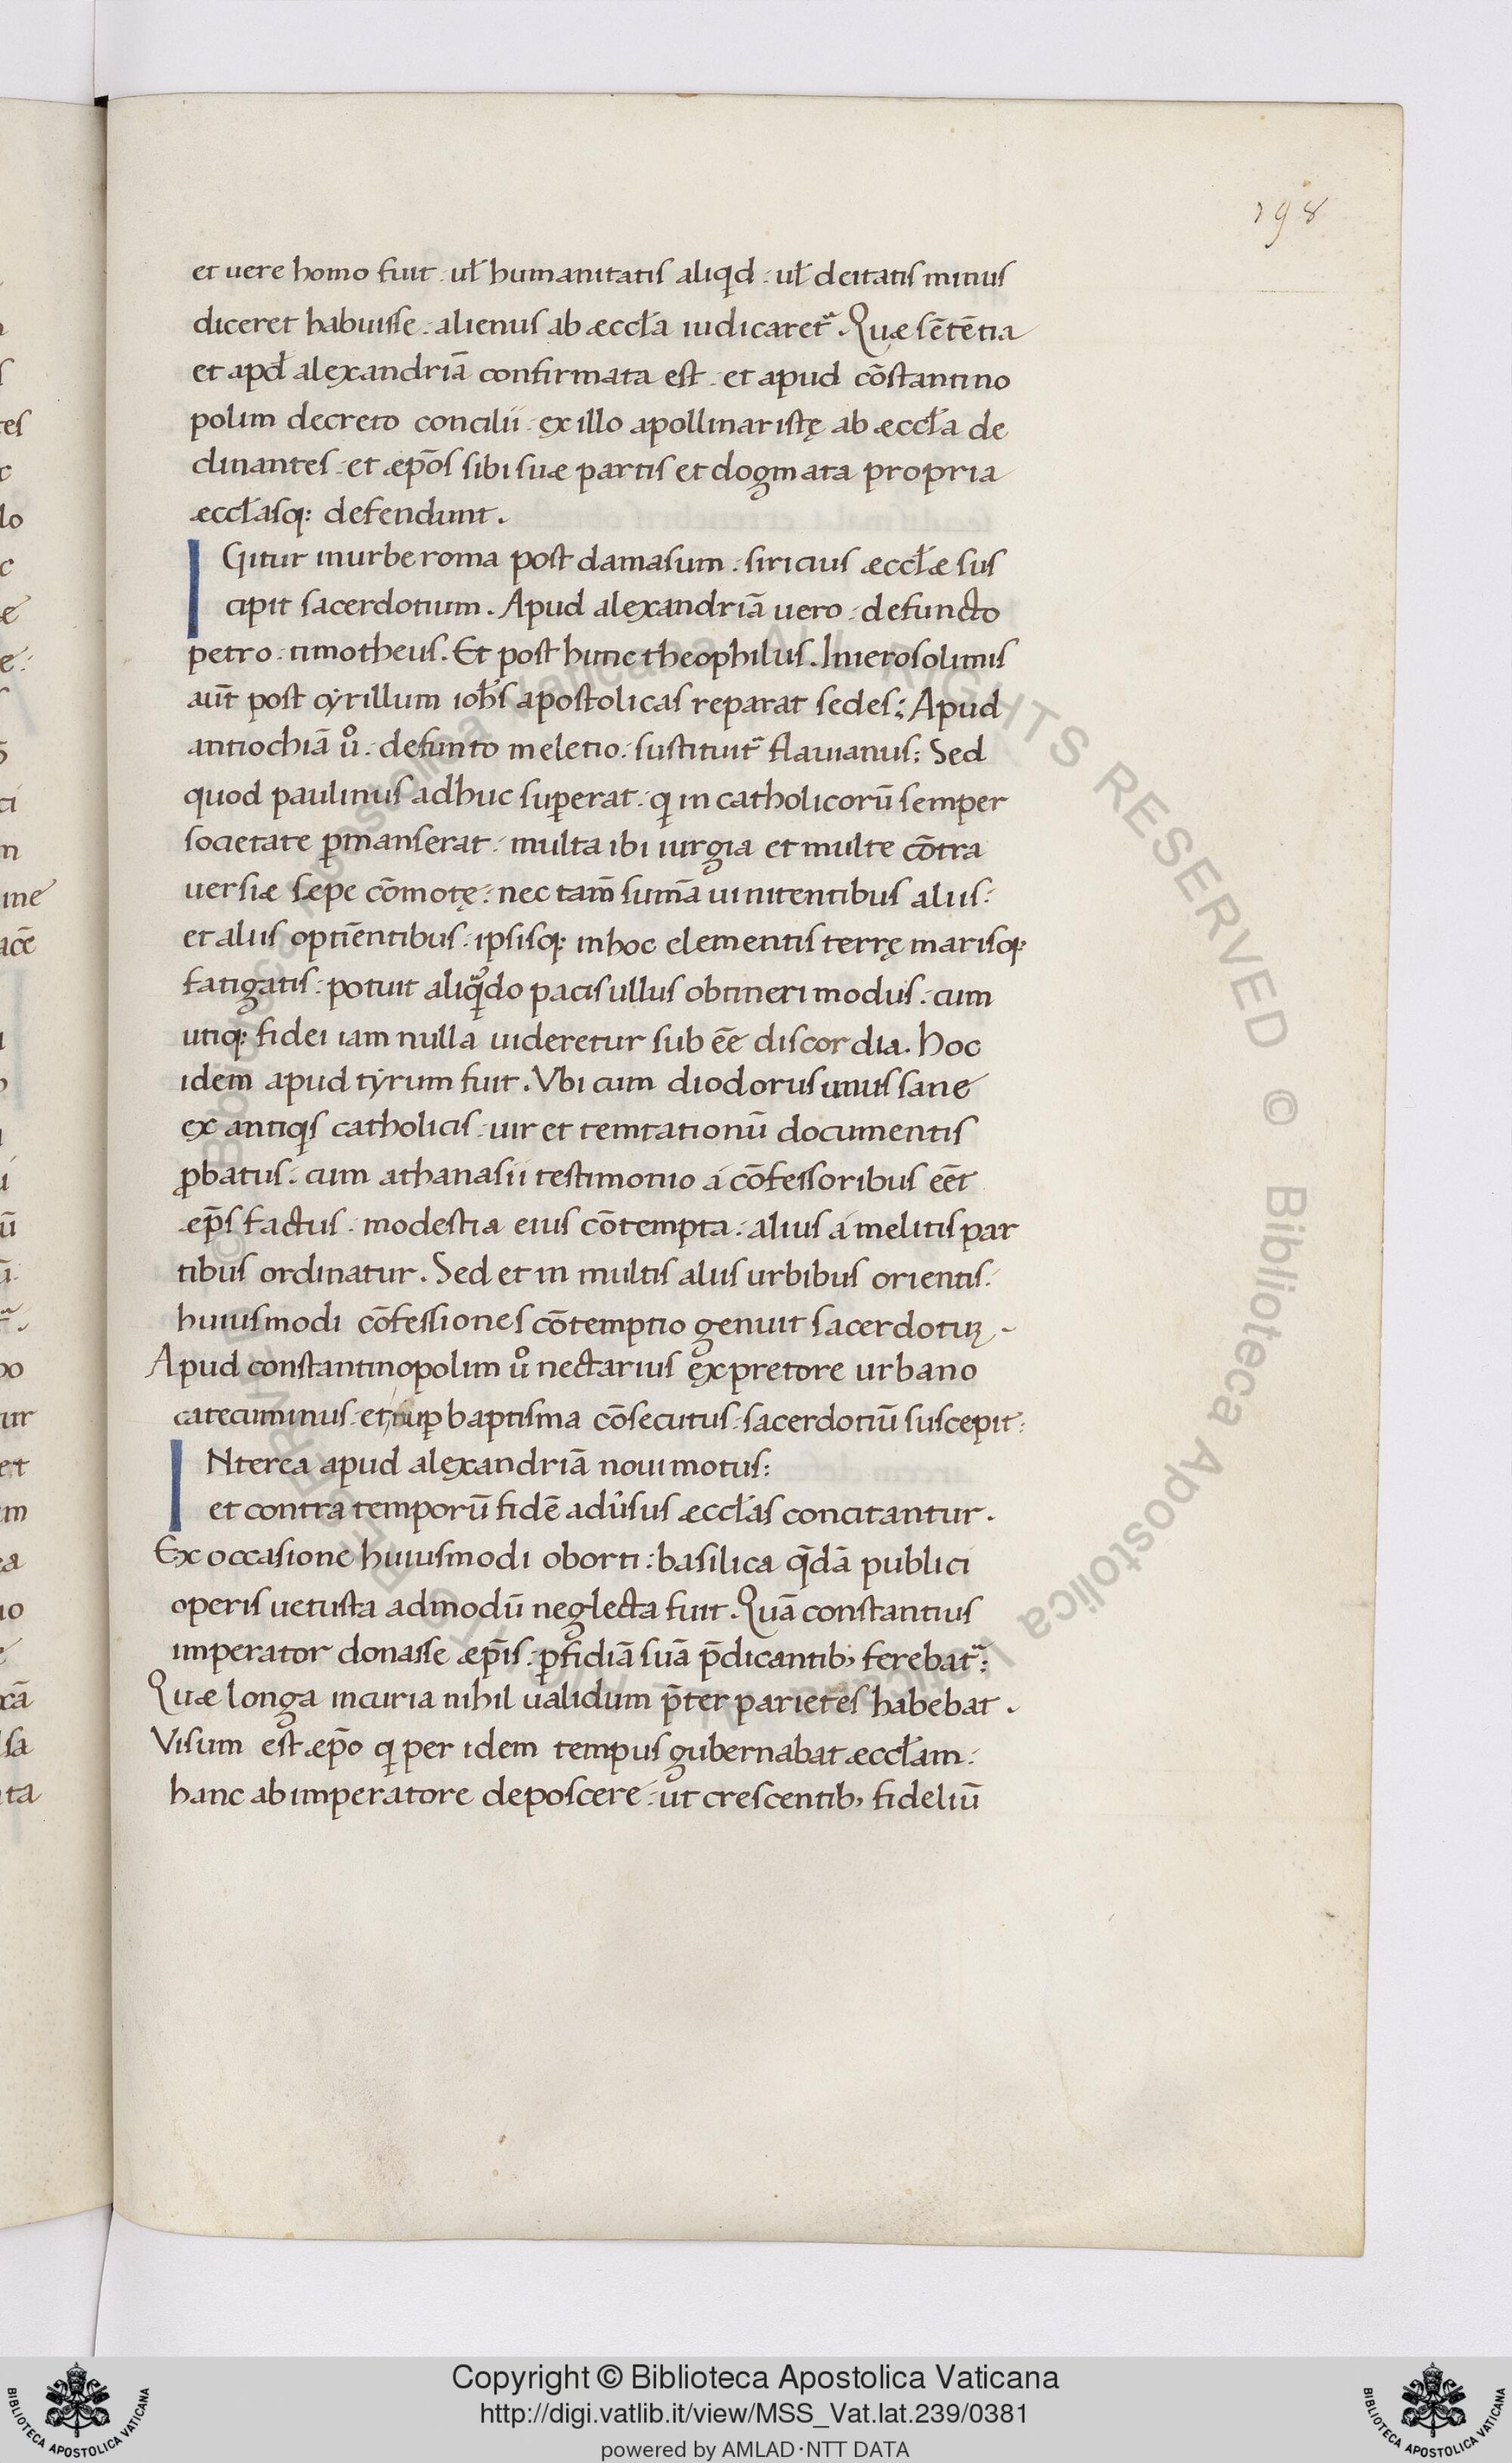 198
et uere homo fuit. uł humanitatis aliqid. uł deitatis minus
diceret habuisse. alienus ab æccła iudicaret᷑. Quæ sētētia
et apđ alexandriā confirmata est. et apud cōstantino
polim decreto concilii. ex illo apollinaristę ab æccła de
clinantes. et æpōs sibi suæ partis et dogmata propria
æccłasq: defendunt.
IGitur in urbe roma post damasum. siricius æccłæ sus
cipit sacerdotium. Apud alexandriā uero. defuncto
petro. timotheus. Et post hunc theophilus. In ierosolimis
aut̄ post cyrillum ioh̄s apostolicas reparat sedes; Apud
antiochiā uͦ. defunto meletio. sustituit᷑ flauianus; Sed
quod paulinus adhuc superat. q in catholicorū semper
societate ꝑmanserat. multa ibi iurgia et multe cōtra
uersiæ sæpe cōmotę. nec tam̄ sum̄a ui nitentibus aliis.
et aliis optīentibus. ipsisq: in hoc elementis terrę marisq:
fatigatis. potuit aliqᷓdo pacis ullus obtineri modus. cum
utiq: fidei iam nulla uideretur sub ēe discordia. Hoc
idem apud tyrum fuit. Vbi cum diodorus unus sane
ex antiqis catholicis. uir et temtationū documentis
ꝓbatus. cum athanasii testimonio á cōfessoribus eēt
æp̄s factus. modestia eius cōtempta. alius á melitis par
tibus ordinatur. Sed et in multis aliis urbibus orientis.
huiusmodi cōfessiones cōtemptio genuit sacerdotuꝝ.
Apud constantinopolim uͦ nectarius ex pretore urbano
catecuminus. et nuꝑ baptisma cōsecutus. sacerdotiū suscepit.
INterea apud alexandriā noui motus:
et contra temporū fidē adu᷑sus æccłas concitantur.
Ex occasione huiusmodi oborti: basilica q̄dā publici
operis uetusta admodū neglecta fuit. Quā constantius
imperator donasse æp̄is. ꝑfidiā suā p̄dicantib; ferebat᷑:
Quæ longa incuria nihil ualidum p̄ter parietes habebat.
Visum est æp̄o q per idem tempus gubernabat æccłam.
hanc ab imperatore deposcere. ut crescentib; fideliū
Copyright © Biblioteca Apostolica Vaticana
http://digi.vatlib.it/view/MSS_Vat.lat.239/0381
powered by AMLAD·NTT DATA